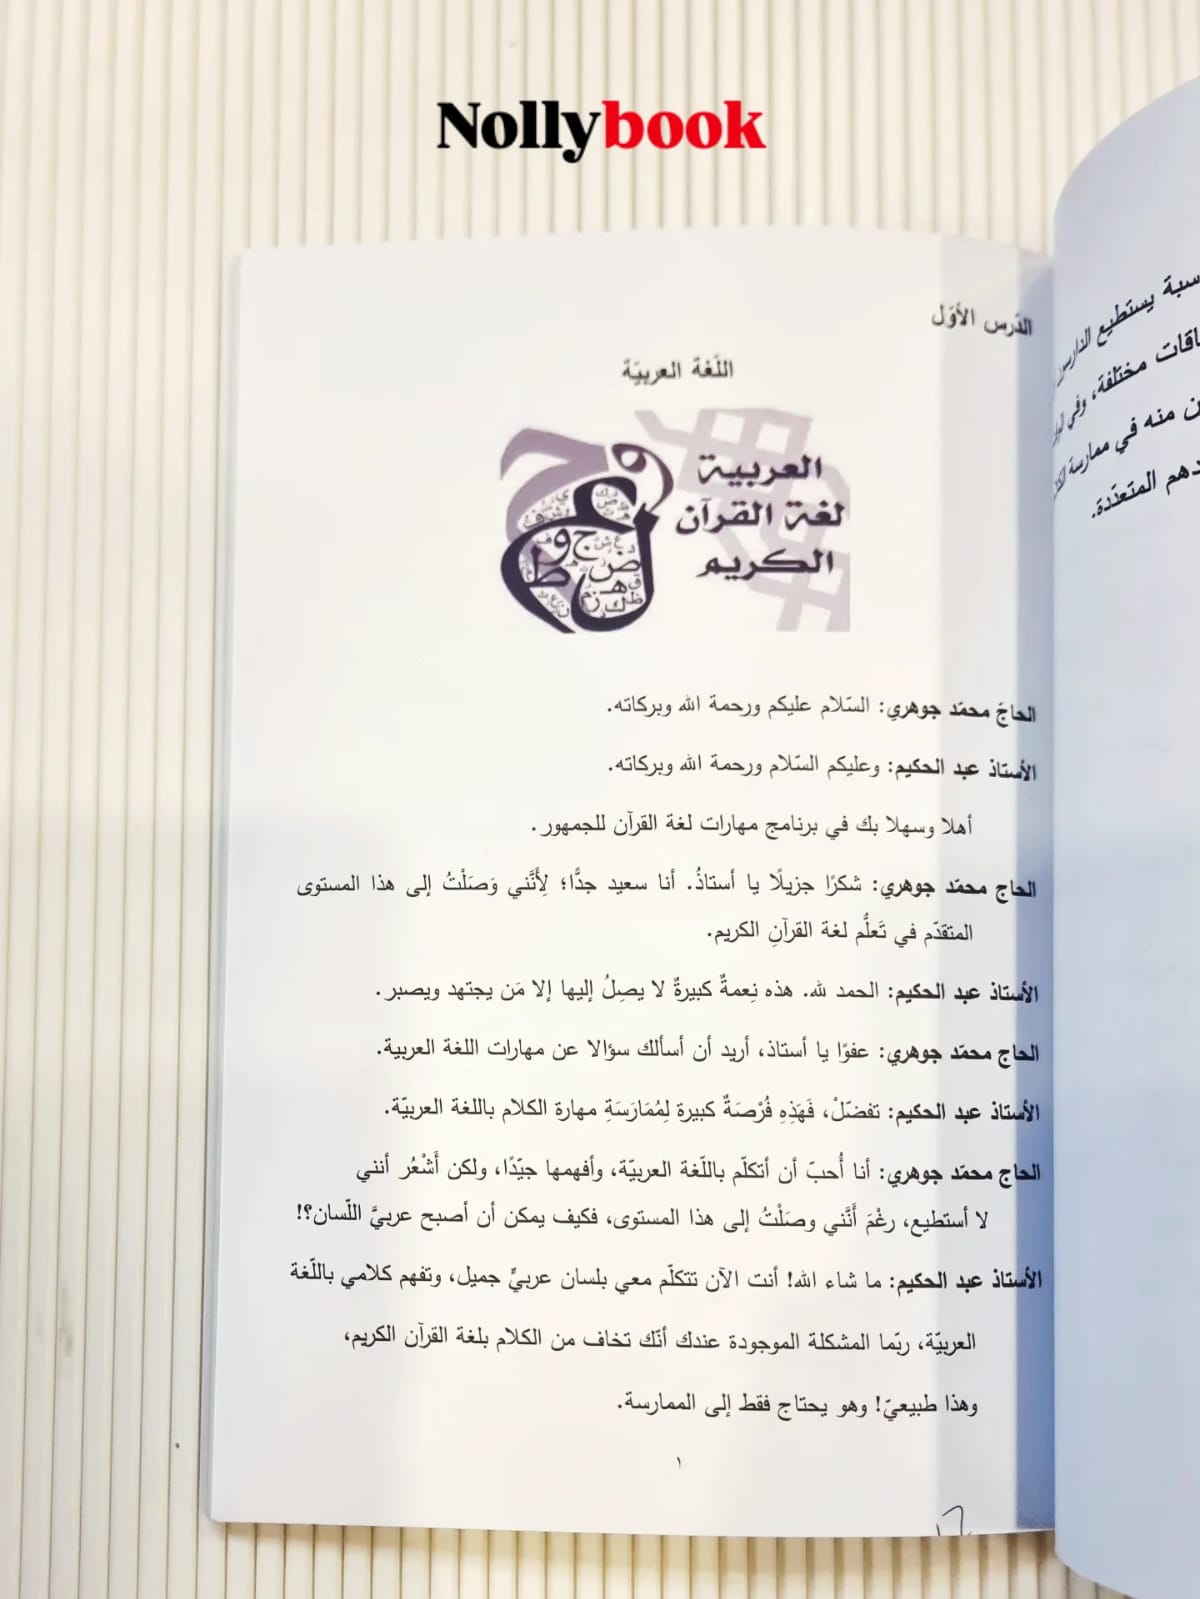 Nollybook
الدّرس الأوّل
اللّغة العربيّة
العربية
لغة القرآن
الكريم
الحاجّ محمّد جوهري: السّلام عليكم ورحمة الله وبركاته.
الأستاذ عبد الحكيم: وعليكم السّلام ورحمة الله وبركاته.
أهلا وسهلا بك في برنامج مهارات لغة القرآن للجمهور.
الحاج محمّد جوهري: شكرًا جزيلًا يا أستاذُ. أنا سعيد جدًّا؛ لِأَنَّني وَصَلْتُ إلى هذا المستوى
المتقدّم في تَعلُّم لغة القرآنِ الكريم.
الأستاذ عبد الحكيم: الحمد لله. هذه نِعمةٌ كبيرةٌ لا يصِلُ إليها إلا مَن يجتهد ويصبر.
الحاج محمّد جوهري: عفوًا يا أستاذ، أريد أن أسألك سؤالا عن مهارات اللغة العربية.
الأستاذ عبد الحكيم: تفضّلْ، فَهَذِهِ فُرْصَةٌ كبيرة لِمُمَارَسَةِ مهارة الكلام باللغة العربيّة.
الحاج محمّد جوهري: أنا أُحبّ أن أتكلّم باللّغة العربيّة، وأفهمها جيّدًا، ولكن أَشْعُر أنني
لا أستطيع، رغْمَ أَنَّني وصَلْتُ إلى هذا المستوى، فكيف يمكن أن أصبح عربيَّ اللّسان؟!
الأستاذ عبد الحكيم: ما شاء الله! أنت الآن تتكلّم معي بلسان عربيٍّ جميل، وتفهم كلامي باللّغة
العربيّة، ربّما المشكلة الموجودة عندك أنّك تخاف من الكلام بلغة القرآن الكريم،
وهذا طبيعيّ! وهو يحتاج فقط إلى الممارسة.
١
يستطيع
مختلفة، وفي
منه في ممارسة
المتعدّدة.